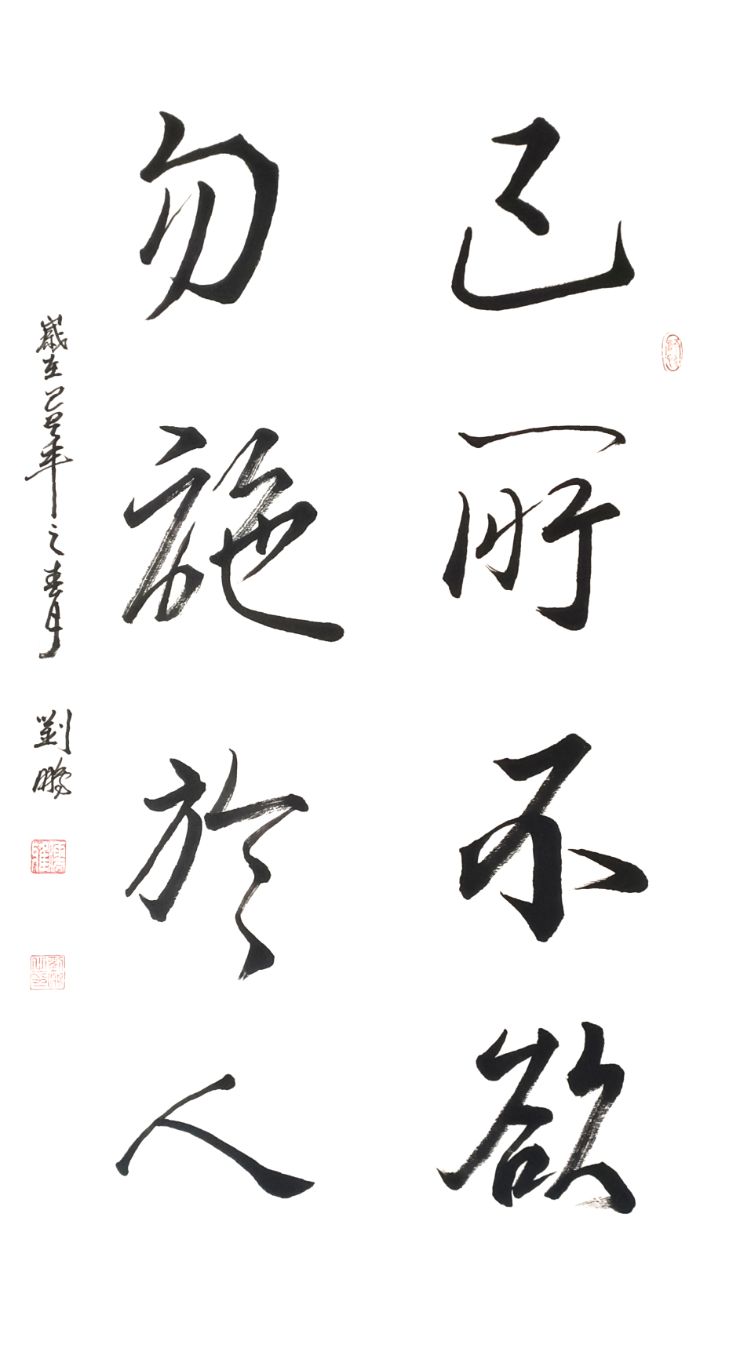 己所不欲
勿施於人
歲在年之春月 劉鵬